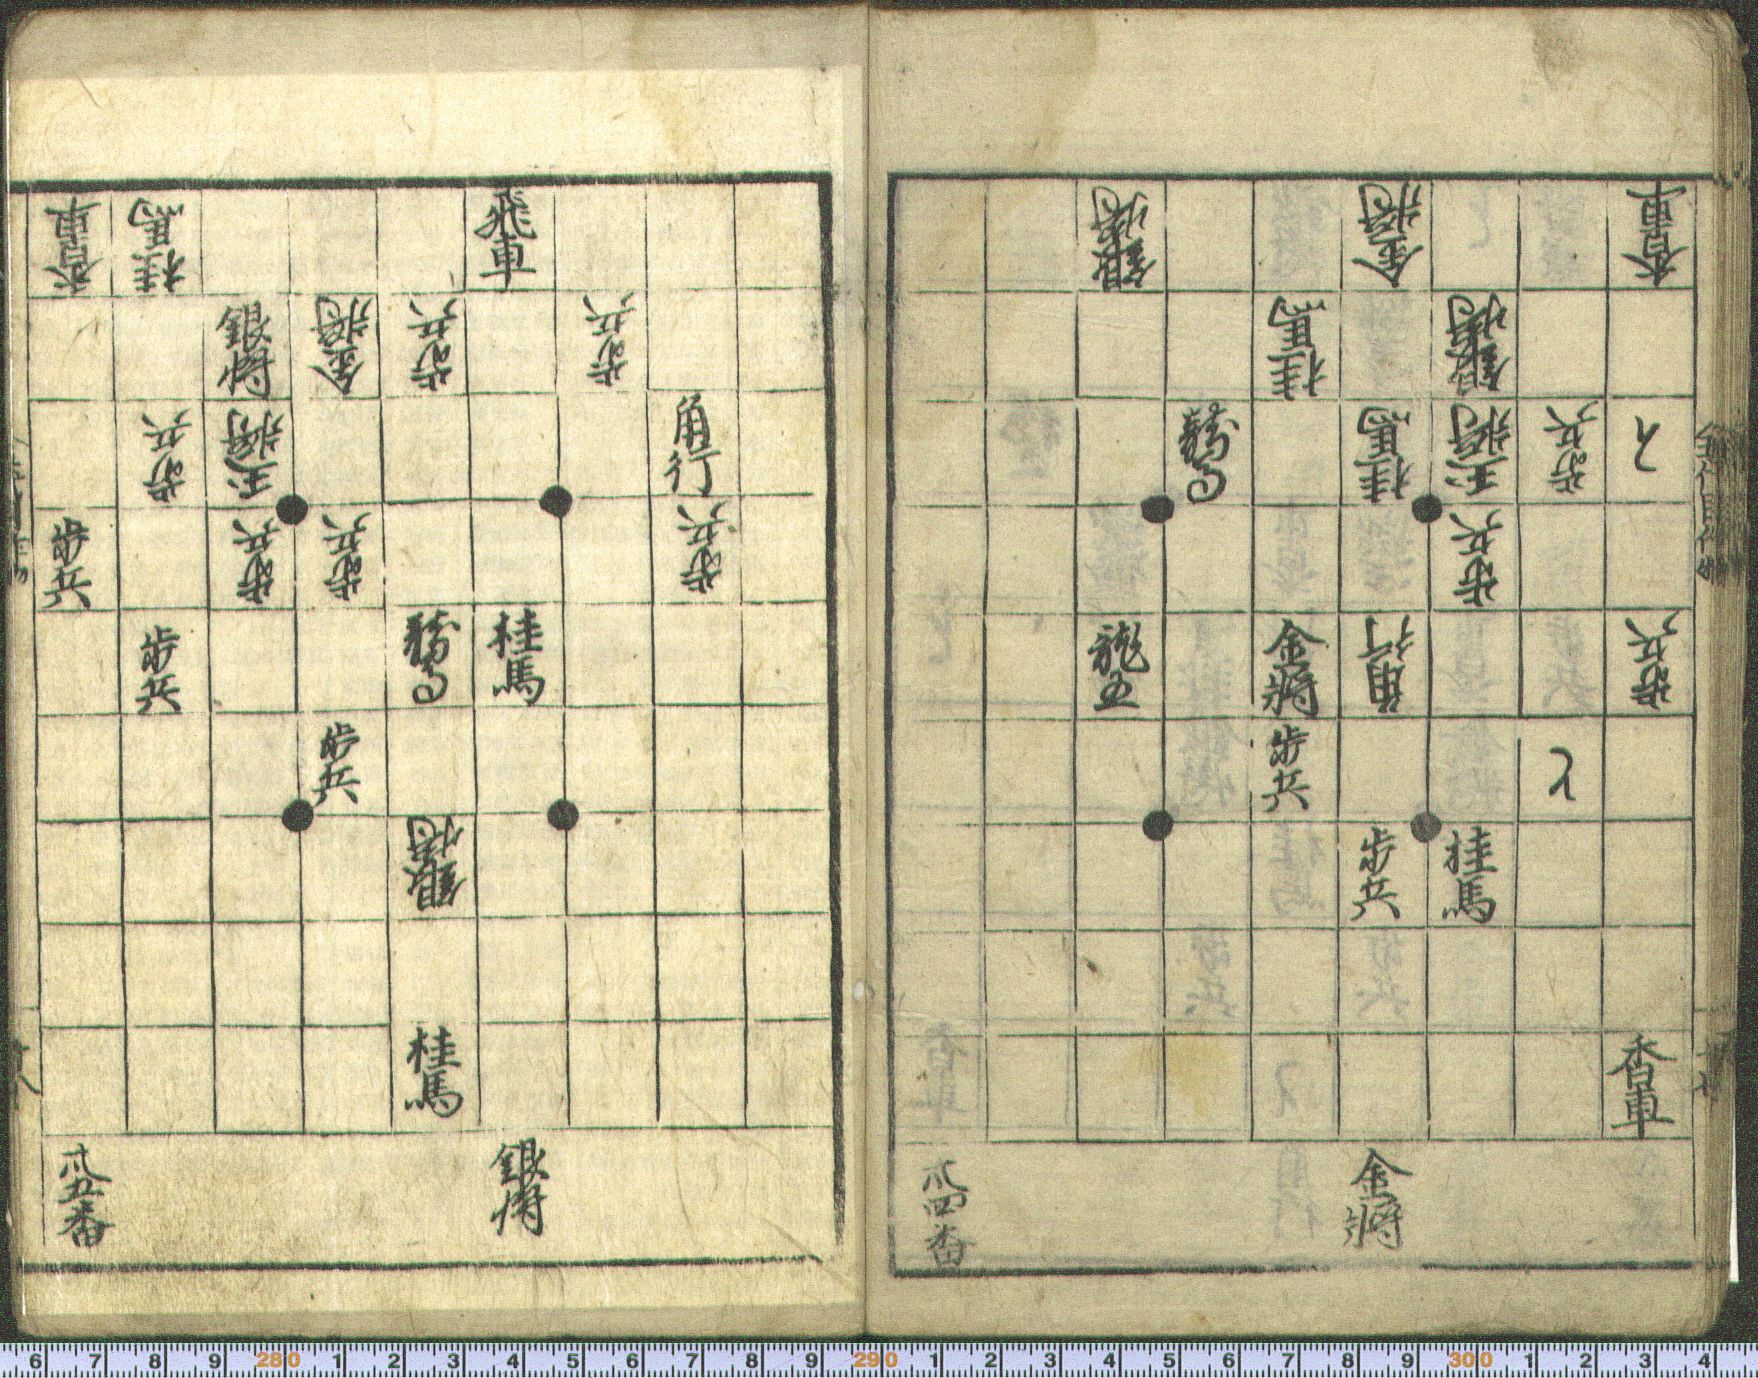 銀将 金将 香車
桂馬 銀将
龍馬 桂馬 玉将 歩兵 と
歩兵
龍王 金将 角行 歩兵
歩兵 と
歩兵 桂馬
香車
金将
四番
香車 桂馬 飛車
銀将 金将 歩兵 歩兵
歩兵 玉将 角行
歩兵 歩兵 歩兵 歩兵
歩兵 龍馬 桂馬
歩兵
銀将
桂馬
銀将
五番
6 7 8 9 280 1 2 3 4 5 6 7 8 9 290 1 2 3 4 5 6 7 8 9 300 1 2 3 4